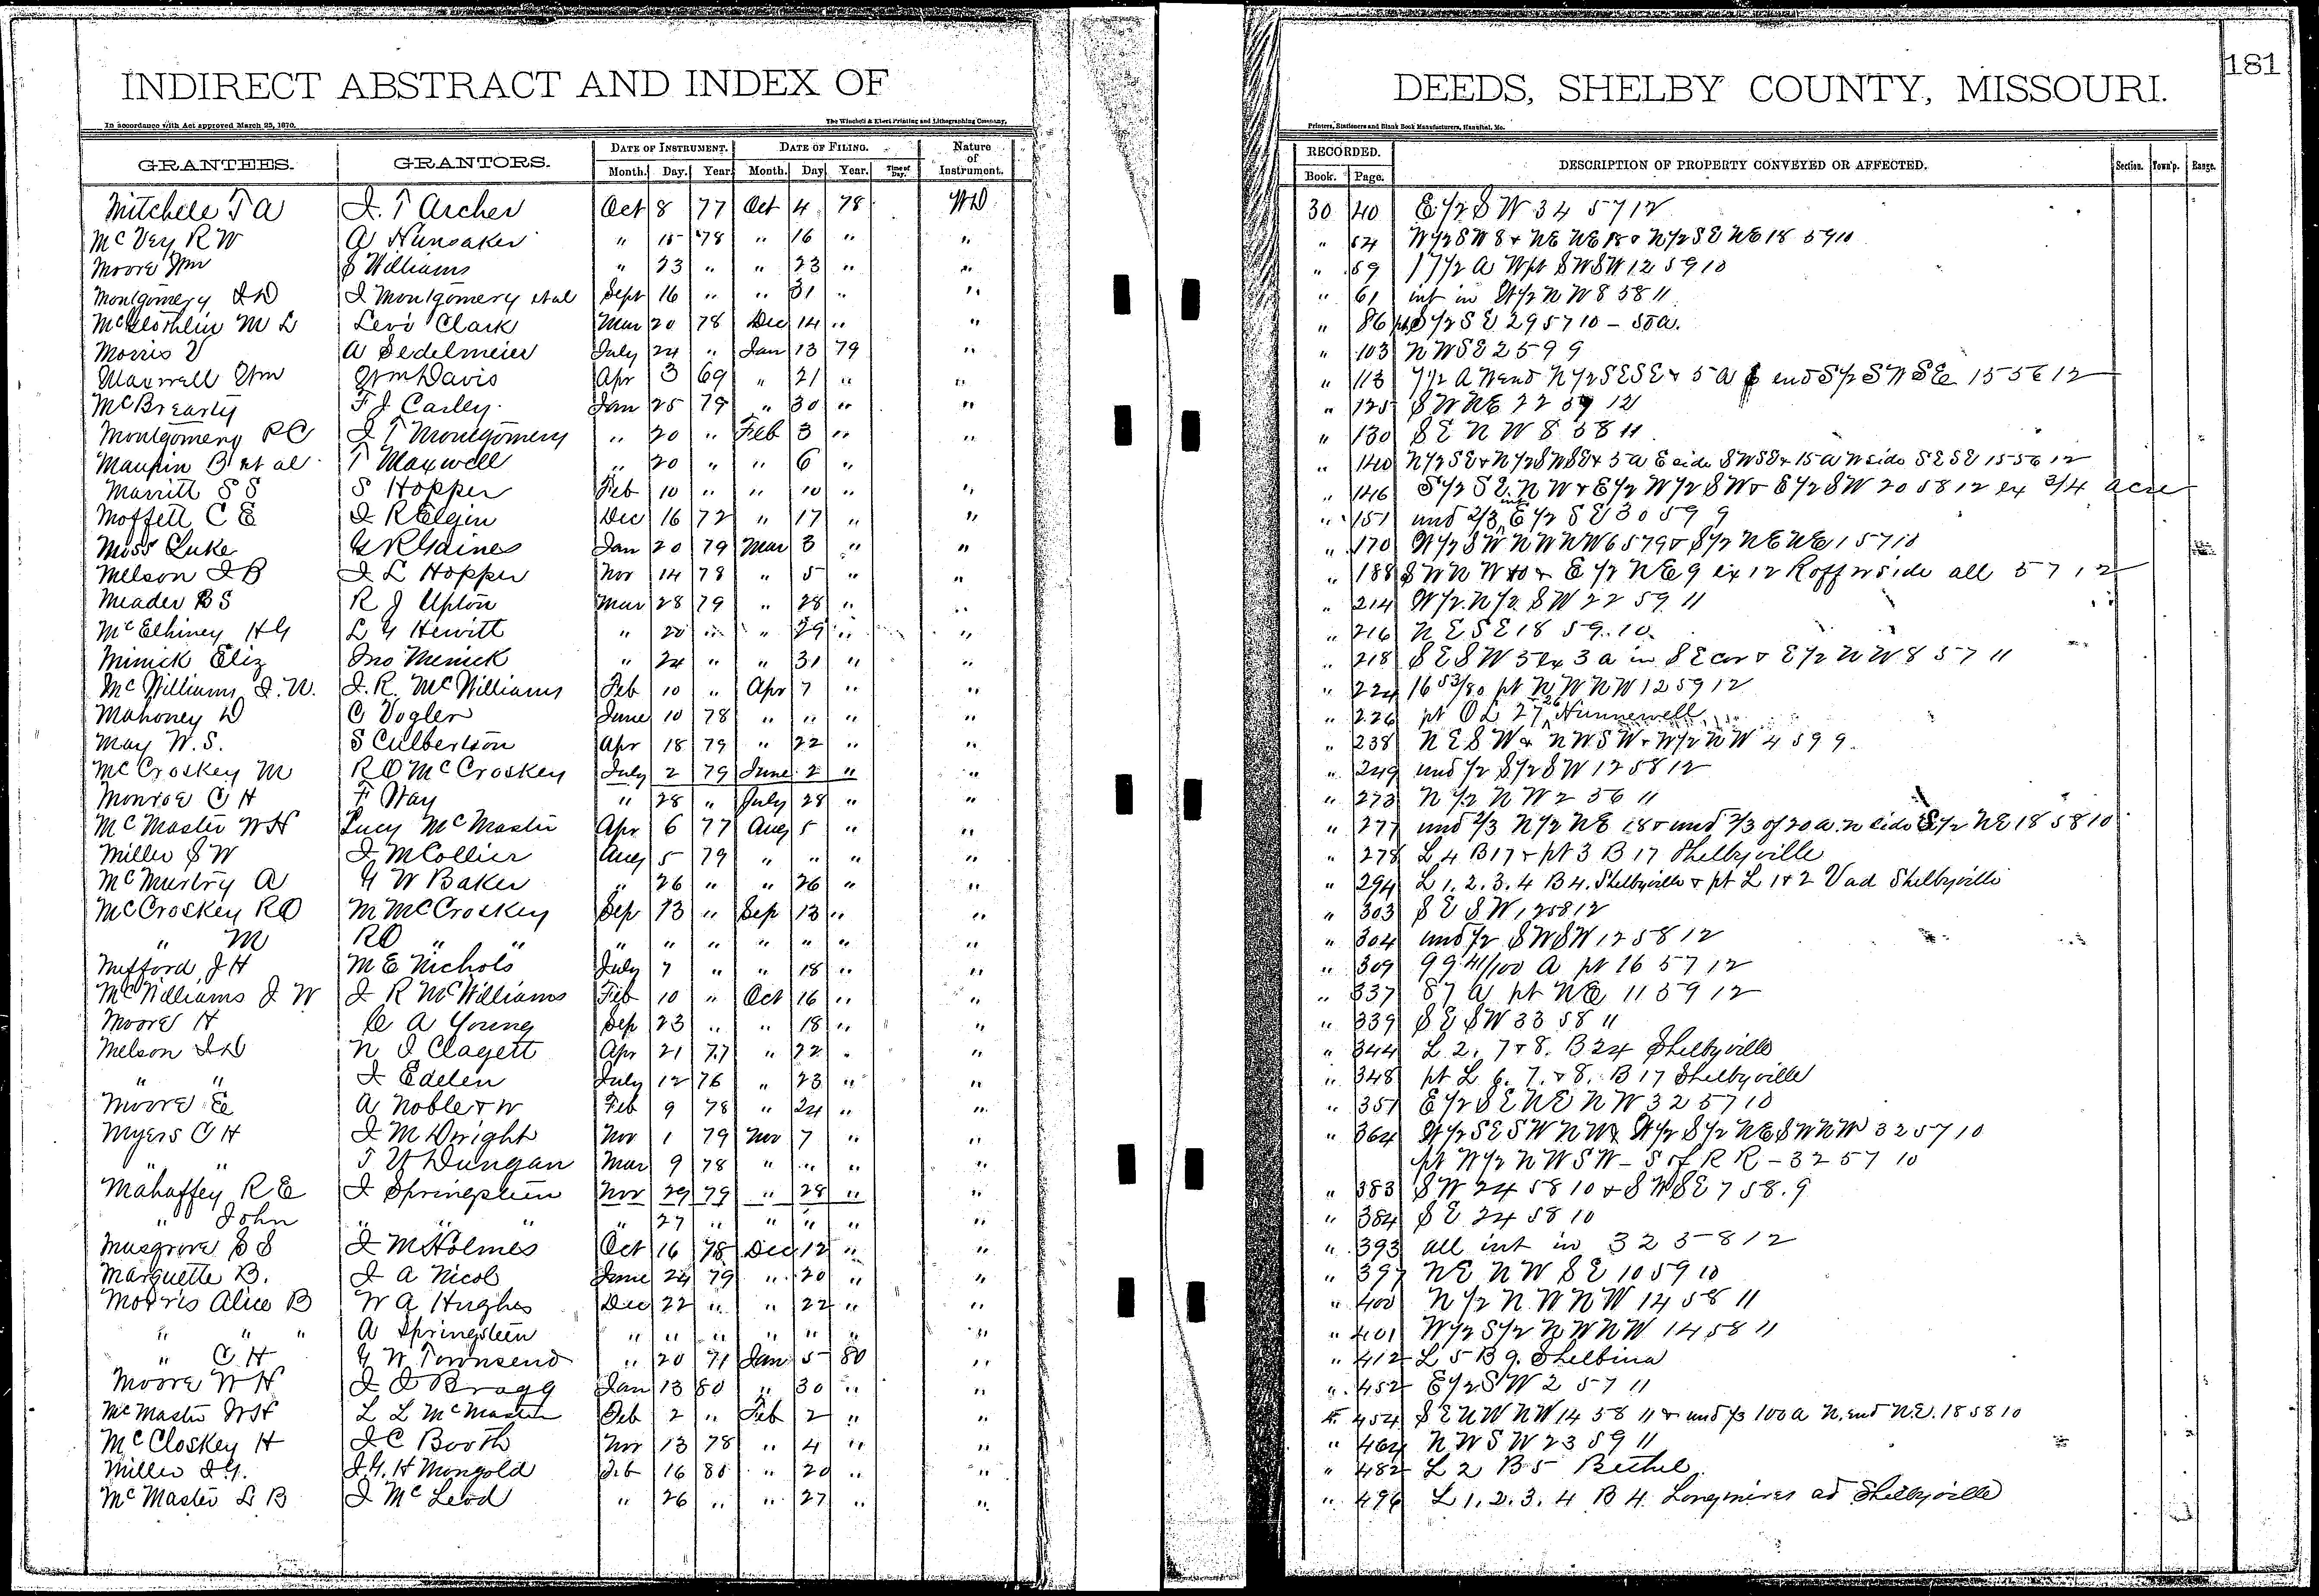 181
INDIRECT ABSTRACT AND INDEX OF DEEDS, SHELBY COUNTY, MISSOURI.
In accordance with Act approved March 25, 1870. The Winchell & Ebert Printing and Lithographing Company, Printers, Stationers and Blank Book Manufacturers, Hannibal, Mo.
GRANTEES. GRANTORS. DATE OF INSTRUMENT. DATE OF FILING. Nature of Instrument. RECORDED. DESCRIPTION OF PROPERTY CONVEYED OR AFFECTED. Section. Town'p. Range.
Month. Day. Year. Month. Day. Year. Time of Day. Book. Page.
Mitchell T A J. T Archer Oct 8 77 Oct 4 78 WD 30 40 E 1/2 S W 34 57 12
McVey R W A Hunsaker " 15 78 " 16 " " " 54 W 1/2 SW 8 & NE NE 18 & N 1/2 SE NE 18 59 10
Moore Wm S Williams " 23 " " 23 " " " 59 17 1/2 A W pt SW SW 12 59 10
Montgomery J D J Montgomery et al Sept 16 " " 31 " " " 61 int in W 1/2 N W 8 58 11
McGlothlin M L Levi Clark Mar 20 78 Dec 14 " " " 86 pt S 1/2 S E 29 57 10 - 50 a.
Morris V A Sedelmeier July 24 " Jan 13 79 " " 103 N W S E 25 9 9
Maxwell Wm Wm Davis Apr 3 69 " 21 " " " 113 7 1/2 A W end N 1/2 SE SE & 5 A end S 1/2 SW SE 15 56 12
McBrearty F J Carley Jan 25 79 " 30 " " " 125 S W N E 22 59 12
Montgomery R C J T Montgomery " 20 " Feb 3 " " " 130 S E N W 8 58 11
Maupin B et al T Maxwell " 20 " " 6 " " 140 N 1/2 SE & N 1/2 SW SE & 5 a E side SW SE & 15 a N side SE SE 15 56 12
Marritt S S S Hopper Feb 10 " " 10 " " " 146 S 1/2 S E N W & E 1/2 W 1/2 S W & E 1/2 S W 20 58 12 ex 3/4 acre
Moffett C E J R Elgin Dec 16 72 " 17 " " " 151 und 2/3 int E 1/2 S E 30 59 9
Moss Luke G R Gaines Jan 20 79 Mar 3 " " " 170 W 1/2 S W N W N W 6 57 9 & S 1/2 N E N E 1 57 10
Melson J B J L Hopper Nov 14 78 " 5 " " " 188 S W N W 10 & E 1/2 N E 9 ex 12 R off W side all 57 12
Meader B S R J Upton Mar 28 79 " 28 " " " 214 W 1/2 N 1/2 S W 22 59 11
McElhiney H G L G Hewitt " 20 " " 29 " " " 216 N E S E 18 59 10
Minick Eliz Jno Minick " 24 " " 31 " " " 218 S E S W 5 ex 3 a in S E cor & E 1/2 N W 8 57 11
McWilliams J. W. J. R. McWilliams Feb 10 " Apr 7 " " " 224 16 53/80 pt N W N W 12 59 12
Mahoney D C Vogler June 10 78 " " " " " 226 pt O L 27 26 Hunnewell
May W. S. S Culbertson Apr 18 79 " 22 " " " 238 N E S W & N W S W & W 1/2 N W 4 59 9
McCroskey M R O McCroskey July 2 79 June 2 " " " 249 und 1/2 S 1/2 S W 12 58 12
Monroe C H F Way " 28 " July 28 " " " 273 N 1/2 N W 2 56 11
McMaster W H Lucy McMaster Apr 6 77 Aug 5 " " " 277 und 2/3 N 1/2 N E 18 & und 2/3 of 20 a. N side S 1/2 N E 18 58 10
Miller S W J M Collier Aug 5 79 " " " " " 278 L 4 B 17 & pt 3 B 17 Shelbyville
McMurtry A G W Baker " 26 " " 26 " " " 294 L 1. 2. 3. 4 B 4. Shelbyville & pt L 1 & 2 V ad Shelbyville
McCroskey R O M McCroskey Sep 13 " Sep 13 " " " 303 S E S W 12 58 12
" M R O " " " " " " " " " " 304 und 1/2 S W S W 12 58 12
Mifford J H M E Nichols July 7 " " 18 " " " 309 99 41/100 A pt 16 57 12
McWilliams J W J R McWilliams Feb 10 " Oct 16 " " " 337 87 a pt N E 11 59 12
Moore H C A Young Sep 23 " " 18 " " " 339 S E S W 33 58 11
Melson J D N J Clagett Apr 21 77 " 22 " " " 344 L 2. 7 & 8. B 24 Shelbyville
" " J Edelen July 12 76 " 23 " " " 348 pt L 6. 7. & 8. B 17 Shelbyville
Moore E A Noble & W Feb 9 78 " 24 " " " 351 E 1/2 S E N E N W 32 57 10
Myers C H J M Wright Nov 1 79 Nov 7 " " " 364 W 1/2 S E S W N W & W 1/2 S 1/2 N E S W N W 32 57 10
" " T W Dungan Mar 9 78 " " " " pt W 1/2 N W S W - S of R R - 32 57 10
Mahaffey R E J Springsteen Nov 29 79 " 28 " " " 383 S W 24 58 10 & S W S E 7 58. 9
" John " " " " 27 " " " " " " 384 S E 24 58 10
Musgrove S S J M Holmes Oct 16 78 Dec 12 " " " 393 all int in 32 58 12
Marquette B. J A Nicol June 24 79 " 20 " " " 397 N E N W S E 10 59 10
Morris Alice B W A Hughes Dec 22 " " 22 " " " 400 N 1/2 N W N W 14 58 11
" " " A Springsteen " " " " " " " " 401 W 1/2 S 1/2 N W N W 14 58 11
" C H G W Townsend " 20 71 Jan 5 80 " " 412 L 5 B 9. Shelbina
Moore W H J D Bragg Jan 13 80 " 30 " " " 452 E 1/2 S W 2 57 11
McMaster W H L L McMaster Feb 2 " Feb 2 " " " 454 S E N W N W 14 58 11 & und 1/3 100 a N. end N.E. 18 58 10
McCloskey H J C Booth Nov 13 78 " 4 " " " 464 N W S W 23 59 11
Miller J G. J. G. H Mongold Feb 16 80 " 20 " " " 482 L 2 B 5 Bethel
McMaster L B J McLeod " 26 " " 27 " " " 496 L 1. 2. 3. 4 B H. Longmires ad Shelbyville